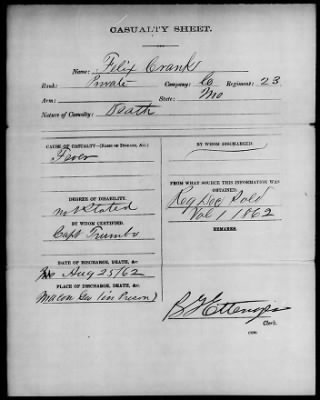 CASUALTY SHEET.
Name: Felix Crank
Rank: Private Company: Regiment: 23
Arm: State: Mo
Nature of Casualty: Death
CAUSE OF CASUALTY—(NAME OF DISEASE, &c.)
Fever
DEGREE OF DISABILITY.
not Stated
BY WHOM CERTIFIED.
Capt Trumbo
DATE OF DISCHARGE, DEATH, &c.
Aug 25/62
PLACE OF DISCHARGE, DEATH, &c.
Macon Geo (in Prison)
BY WHOM DISCHARGED.
FROM WHAT SOURCE THIS INFORMATION WAS
OBTAINED.
Reg Dec Sold
Vol 1 1862
REMARKS.
Clerk.